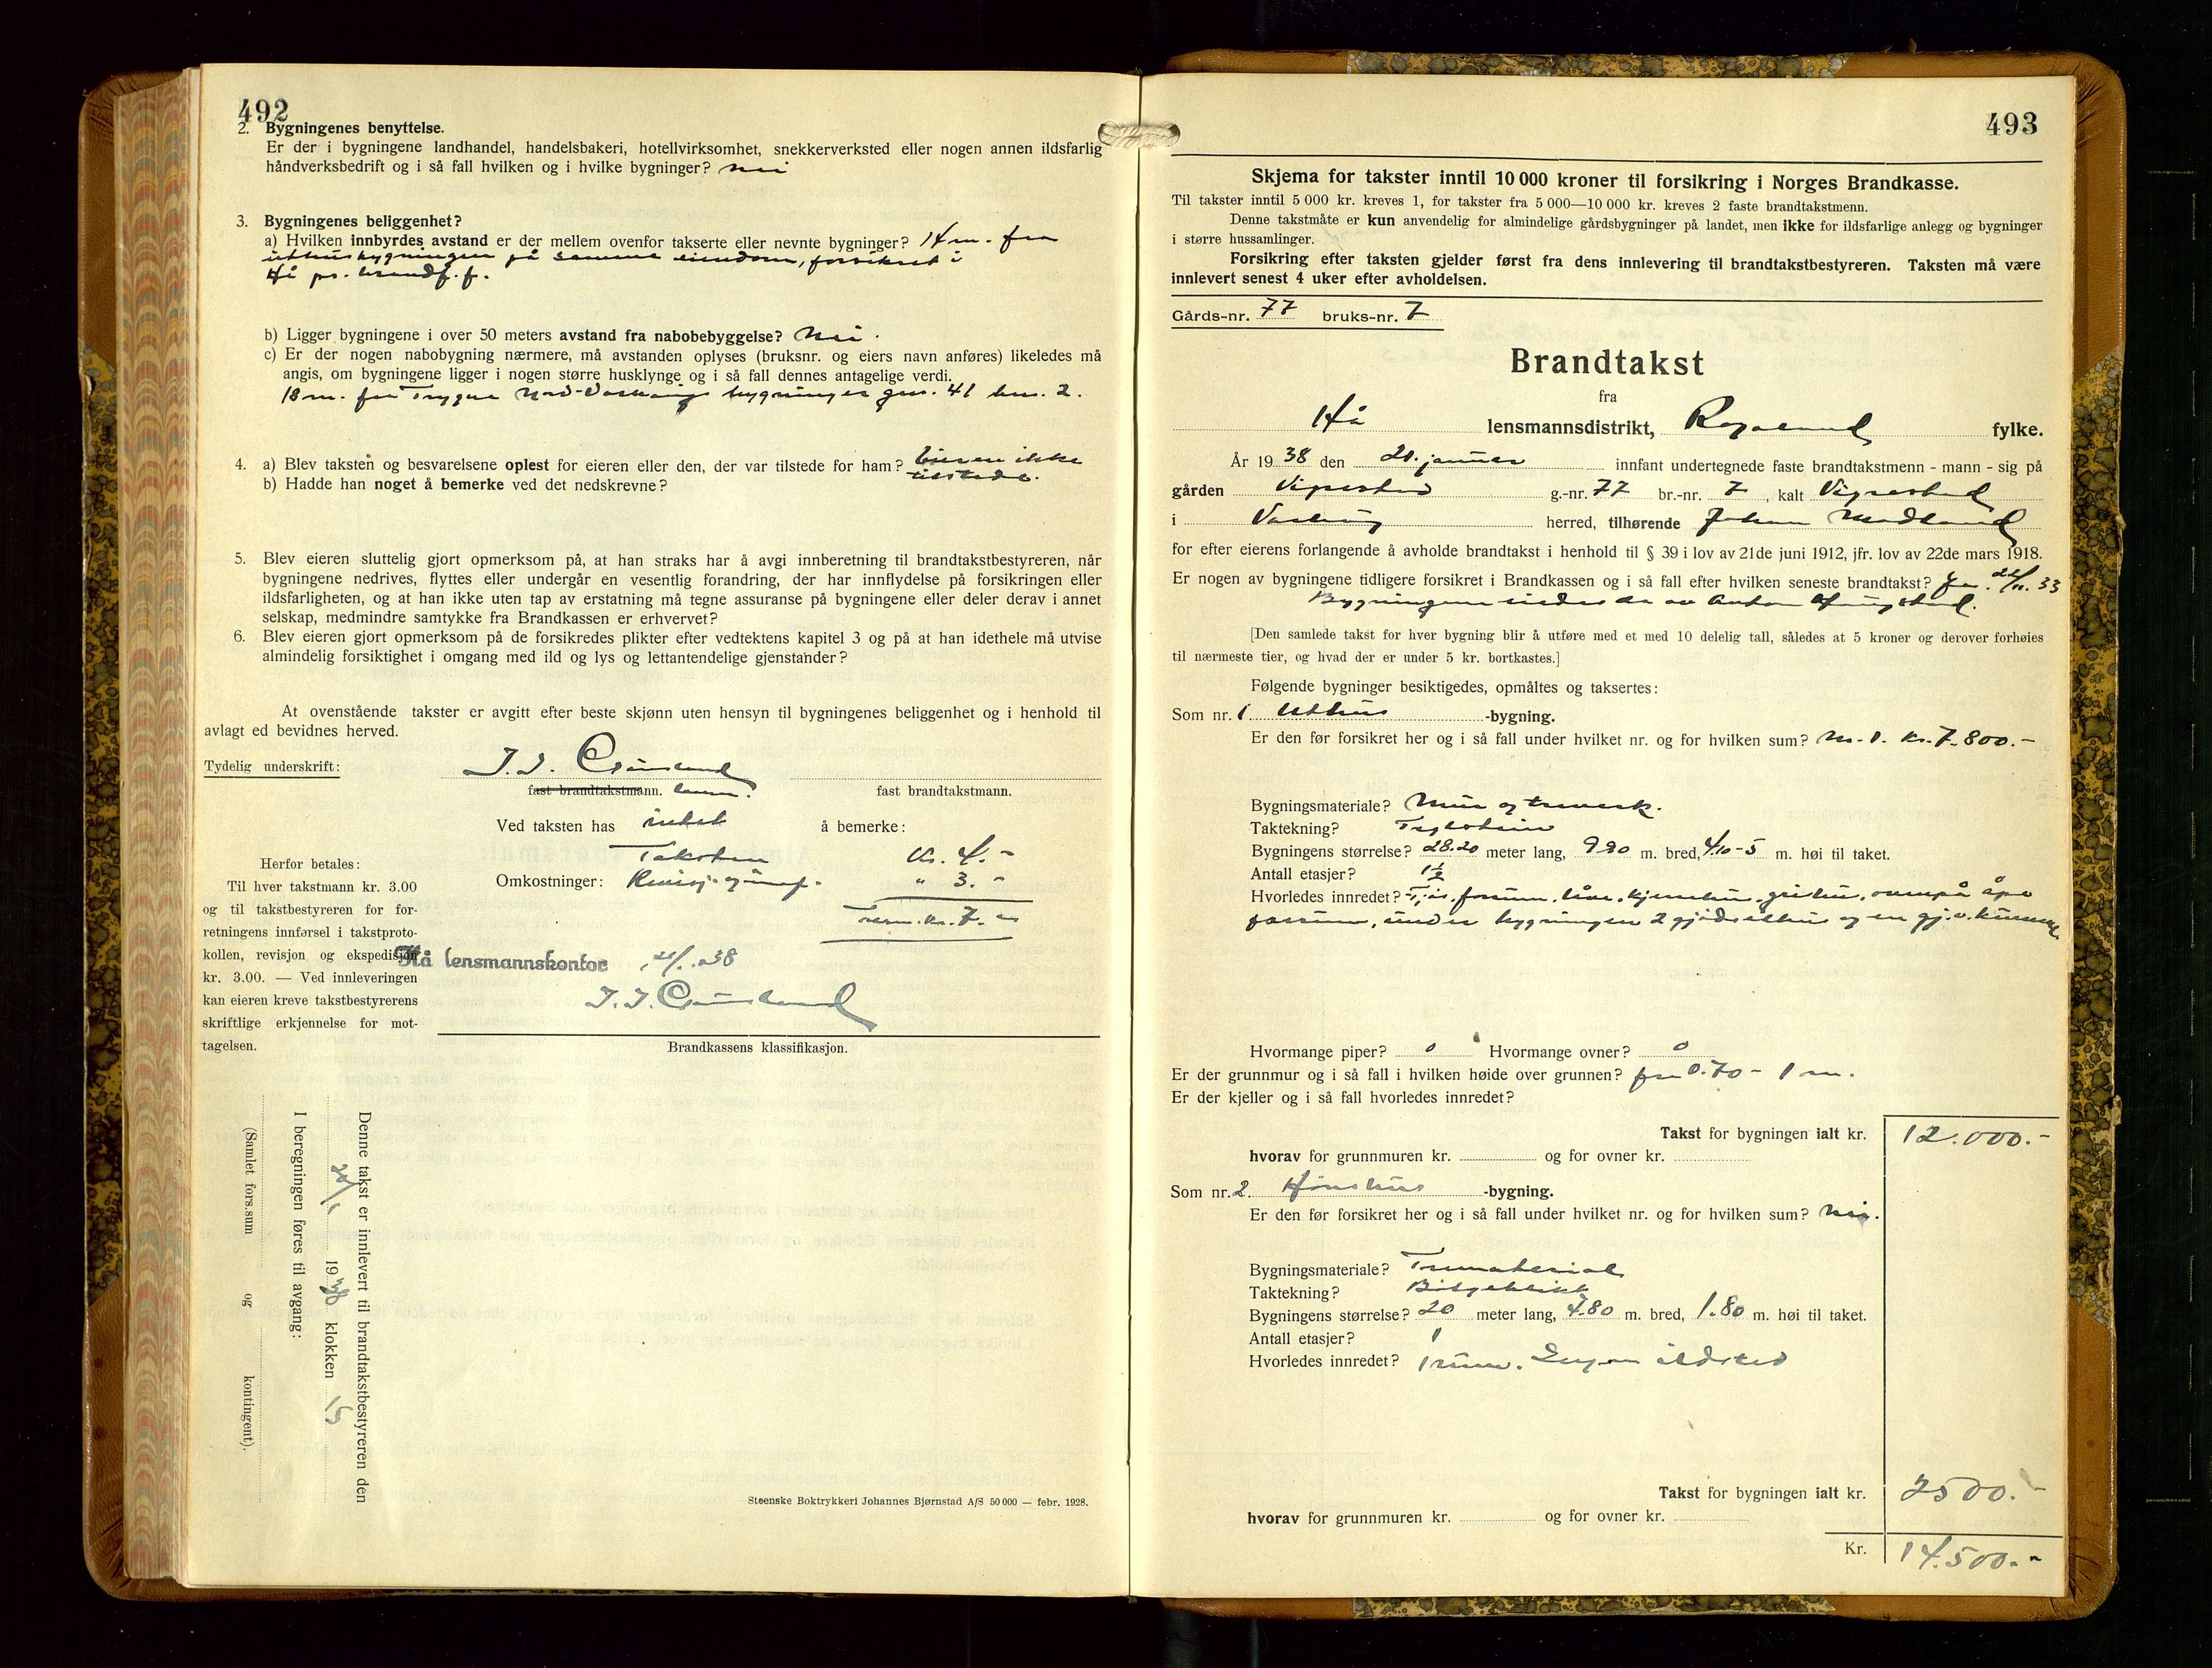 492
2. Bygningenes benyttelse.
Er der i bygningene landhandel, handelsbakeri, hotellvirksomhet, snekkerverksted eller nogen annen ildsfarlig
håndverksbedrift og i så fall hvilken og i hvilke bygninger? nei
3. Bygningenes beliggenhet?
a) Hvilken innbyrdes avstand er der mellem ovenfor takserte eller nevnte bygninger? 14 m. fra
uthusbygningen på samme eiendom, forsikret i
Hå pr. brandf. f.
b) Ligger bygningene i over 50 meters avstand fra nabobebyggelse? nei.
c) Er der nogen nabobygning nærmere, må avstanden oplyses (bruksnr. og eiers navn anføres) likeledes må
angis, om bygningene ligger i nogen større husklynge og i så fall dennes antagelige verdi.
18 m. fra Trygve bygninger gnr. 41 bnr. 2.
4. a) Blev taksten og besvarelsene oplest for eieren eller den, der var tilstede for ham? Eieren ikke
tilstede.
b) Hadde han noget å bemerke ved det nedskrevne?
5. Blev eieren sluttelig gjort opmerksom på, at han straks har å avgi innberetning til brandtakstbestyreren, når
bygningene nedrives, flyttes eller undergår en vesentlig forandring, der har innflydelse på forsikringen eller
ildsfarligheten, og at han ikke uten tap av erstatning må tegne assuranse på bygningene eller deler derav i annet
selskap, medmindre samtykke fra Brandkassen er erhvervet?
6. Blev eieren gjort opmerksom på de forsikredes plikter efter vedtektens kapitel 3 og på at han idethele må utvise
almindelig forsiktighet i omgang med ild og lys og lettantendelige gjenstander?
At ovenstående takster er avgitt efter beste skjønn uten hensyn til bygningenes beliggenhet og i henhold til
avlagt ed bevidnes herved.
Tydelig underskrift:
fast brandtakstmann. lensm. fast brandtakstmann.
Ved taksten has intet å bemerke:
Taksten Kr. 4.-
Omkostninger: " 3.-
Kr. 7.-
Herfor betales:
Til hver takstmann kr. 3.00
og til takstbestyreren for for-
retningens innførsel i takstproto-
kollen, revisjon og ekspedisjon
kr. 3.00. — Ved innleveringen
kan eieren kreve takstbestyrerens
skriftlige erkjennelse for mot-
tagelsen.
Hå lensmannskontor, 38
Brandkassens klassifikasjon.
Denne takst er innlevert til brandtakstbestyreren den
1938 klokken 15
I beregningen føres til avgang:
(Samlet fors.sum og kontingent).
Steenske Boktrykkeri Johannes Bjørnstad A/S 50 000 — febr. 1928.
493
Skjema for takster inntil 10 000 kroner til forsikring i Norges Brandkasse.
Til takster inntil 5 000 kr. kreves 1, for takster fra 5 000—10 000 kr. kreves 2 faste brandtakstmenn.
Denne takstmåte er kun anvendelig for almindelige gårdsbygninger på landet, men ikke for ildsfarlige anlegg og bygninger
i større hussamlinger.
Forsikring efter taksten gjelder først fra dens innlevering til brandtakstbestyreren. Taksten må være
innlevert senest 4 uker efter avholdelsen.
Gårds-nr. 77 bruks-nr. 7
Brandtakst
fra
Hå lensmannsdistrikt, Rogaland fylke.
År 1938 den 20. januar innfant undertegnede faste brandtakstmenn - mann - sig på
gården Vigrestad g.-nr. 77 br.-nr. 7, kalt Vigrestad
i Varhaug herred, tilhørende Johan Madland
for efter eierens forlangende å avholde brandtakst i henhold til § 39 i lov av 21de juni 1912, jfr. lov av 22de mars 1918.
Er nogen av bygningene tidligere forsikret i Brandkassen og i så fall efter hvilken seneste brandtakst? Ja. 22/11. 33
Bygningene av Anton
[Den samlede takst for hver bygning blir å utføre med et med 10 delelig tall, således at 5 kroner og derover forhøies
til nærmeste tier, og hvad der er under 5 kr. bortkastes.]
Følgende bygninger besiktigedes, opmåltes og taksertes:
Som nr. 1 Uthus -bygning.
Er den før forsikret her og i så fall under hvilket nr. og for hvilken sum? nr. 1. kr. 7.800.-
Bygningsmateriale? Mur og treverk.
Taktekning? Teglstein
Bygningens størrelse? 28.20 meter lang, 9.20 m. bred, 4.10-5 m. høi til taket.
Antall etasjer? 1½
Hvorledes innredet? forrum, låve, ovenpå åpe
forrum, under bygningen 2 og en gj. v. kummer
Hvormange piper? 0 Hvormange ovner? 0
Er der grunnmur og i så fall i hvilken høide over grunnen? fra 0.70 - 1 m.
Er der kjeller og i så fall hvorledes innredet?
Takst for bygningen ialt kr. 12.000.-
hvorav for grunnmuren kr. og for ovner kr.
Som nr. 2. Hønshus -bygning.
Er den før forsikret her og i så fall under hvilket nr. og for hvilken sum? nei.
Bygningsmateriale? Tremateriale
Taktekning? Bølgeblikk
Bygningens størrelse? 20 meter lang, 4.80 m. bred, 1.80 m. høi til taket.
Antall etasjer? 1
Hvorledes innredet? 1 rum. Ingen ildsted
Takst for bygningen ialt kr. 2500.-
hvorav for grunnmuren kr. og for ovner kr.
Kr. 14.500.-